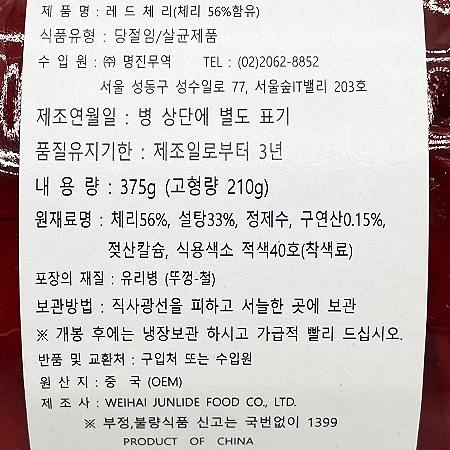 제 품 명 : 레 드 체 리(체리 56%함유)
식품유형 : 당절임/살균제품
수 입 원 : ㈜ 명진무역 TEL : (02)2062-8852
서울 성동구 성수일로 77, 서울숲IT밸리 203호
제조연월일 : 병 상단에 별도 표기
품질유지기한 : 제조일로부터 3년
내 용 량 : 375g (고형량 210g)
원재료명 : 체리56%, 설탕33%, 정제수, 구연산0.15%,
젖산칼슘, 식용색소 적색40호(착색료)
포장의 재질 : 유리병 (뚜껑-철)
보관방법 : 직사광선을 피하고 서늘한 곳에 보관
※ 개봉 후에는 냉장보관 하시고 가급적 빨리 드십시오.
반품 및 교환처 : 구입처 또는 수입원
원 산 지 : 중 국 (OEM)
제 조 사 : WEIHAI JUNLIDE FOOD CO., LTD.
※ 부정,불량식품 신고는 국번없이 1399
PRODUCT OF CHINA